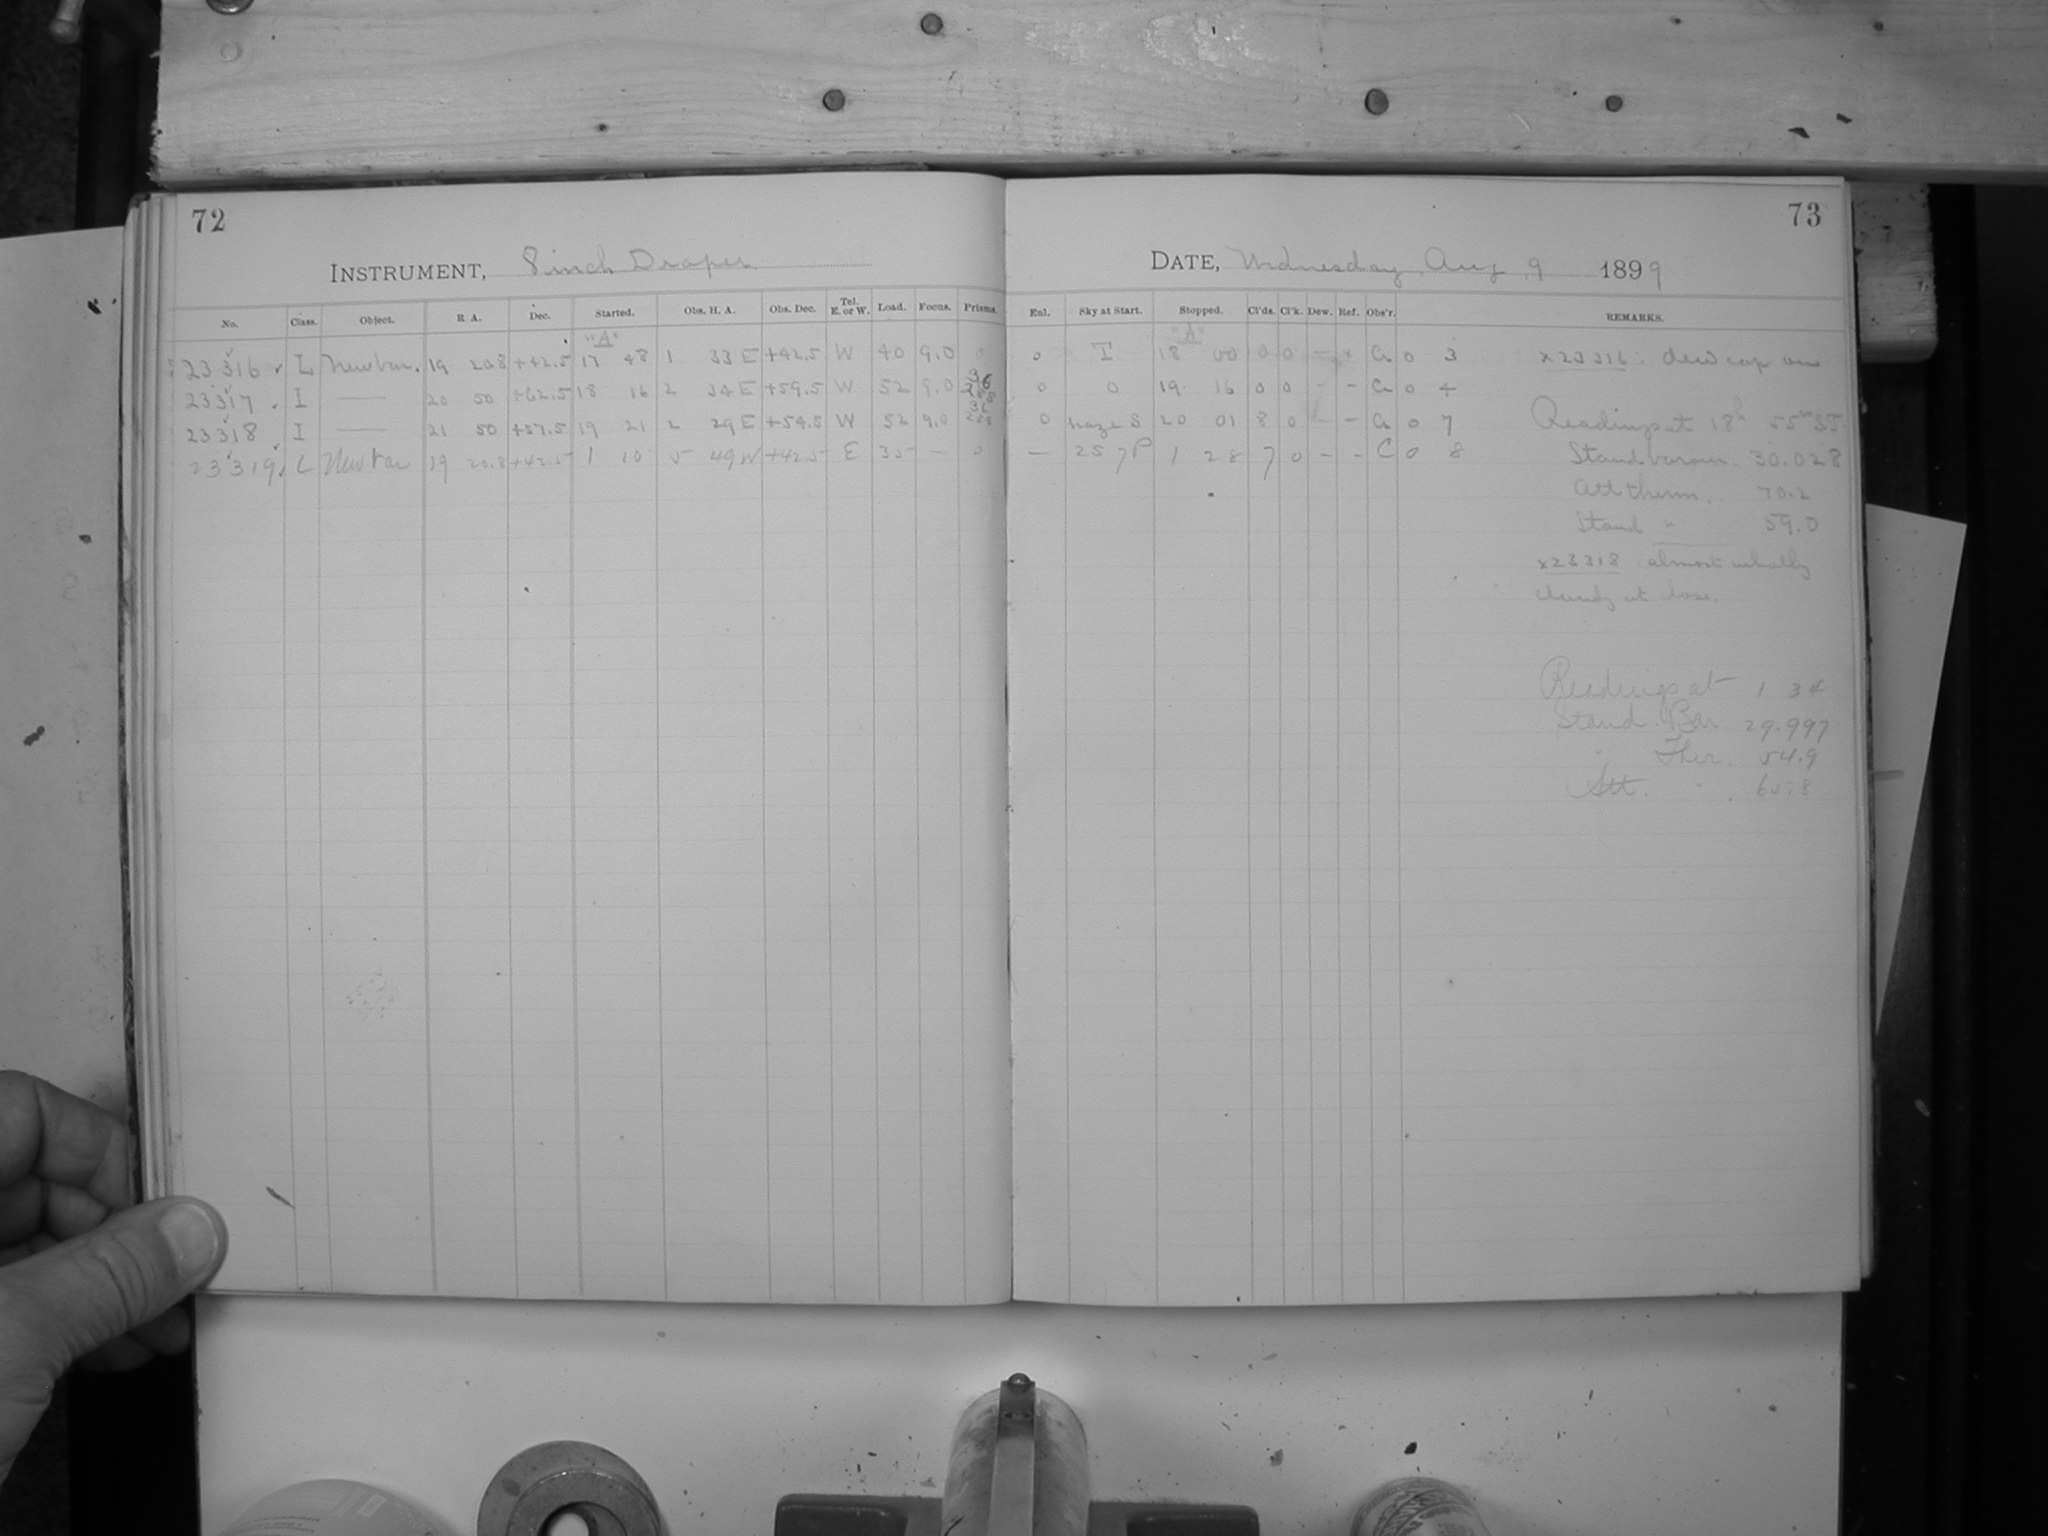 72
INSTRUMENT, 8 inch Draper
No. Class. Object. R A. Dec. Started. Obs. H. A. Obs. Dec. Tel. E. or W. Load. Focus. Prisms.
"A"
23316 L New var. 19 20.8 +42.5 17 48 1 33 E +42.5 W 40 9.0 0
23317 I —— 20 50 +62.5 18 16 2 34 E +59.5 W 52 9.0
23318 I —— 21 50 +57.5 19 21 2 29 E +54.5 W 52 9.0
23319 L New var 19 20.8 +42.5 1 10 5 49 W +42.5 E 35 – 0
73
DATE, Wednesday, Aug 9 1899
Enl. Sky at Start. Stopped. Cl'ds. Cl'k. Dew. Ref. Obs'r. REMARKS.
"A"
0 I 18 00 0 0 – 0 3 x23316: dew cap on
0 0 19 16 0 0 – – 0 4
0 haze S 20 01 8 0 – 0 7 Readings at 18h 55m ST.
— 25 7P 1 28 7 0 – – C 0 8 Stand barom. 30.028
Att therm. 70.2
Stand " 59.0
x23318 almost wholly
cloudy at close.
Readings at 1 34
Stand. Bar 29.997
" Ther. 54.9
Att. " 65.8